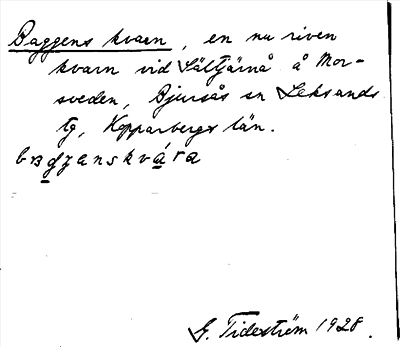 Baggens kvarn, en nu riven
kvarn vid Sältjärnå å Mor-
sveden, Bjursås sn Leksands
tg, Kopparbergs län.
G. Tideström 1928.